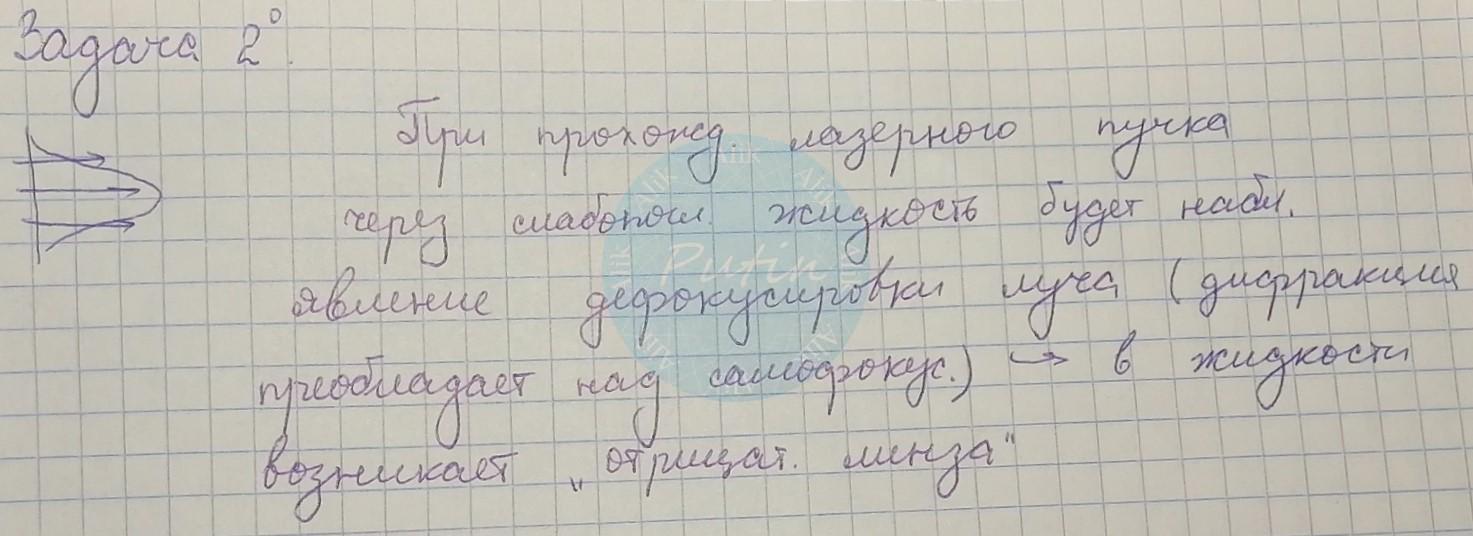 Задача 2°.
При прохожд. лазерного пучка
через слабопогл. жидкость будет набл.
явление дефокусировки луча (дифракция
преобладает над самофокус.) → в жидкости
возникает „отрицат. линза"
Alik
Putin